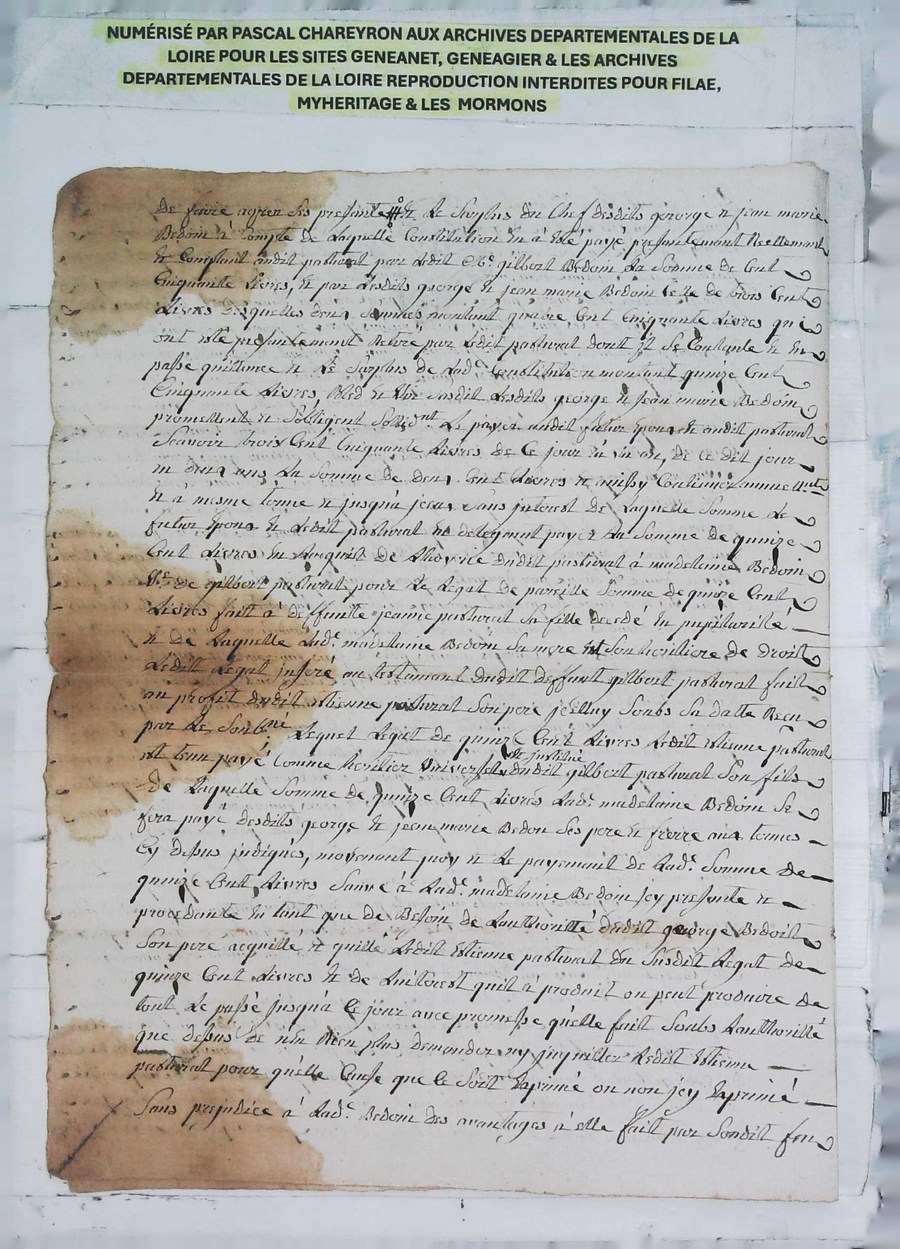 NUMÉRISÉ PAR PASCAL CHAREYRON AUX ARCHIVES DEPARTEMENTALES DE LA
LOIRE POUR LES SITES GENEANET, GENEAGIER & LES ARCHIVES
DEPARTEMENTALES DE LA LOIRE REPRODUCTION INTERDITES POUR FILAE,
MYHERITAGE & LES MORMONS
De faire agreer ses presentes & Le Surplus du Chef desdits george & jean marie
Bedoin à Compte de Laquelle Constitution en à esté payé presentement Reellement
& Comptant audit pasturat par Ledit Me gilbert Bedoin La Somme de Cent
Cinquante Livres, & par Lesdits george & jean marie Bedoin Celle de trois Cent
Livres Desquelles deux Sommes montant quatre Cent Cinquante Livres qui
ont esté presentement Retiré par Ledit pasturat dont Il Se Contante & en
passe quittance & Le Surplus de Lade Constitution montant quinze Cent
Cinquante Livres, Lesdits george & jean marie Bedoin
promettent & Sobligent Le payer audit futur epoux & audit pasturat
Scavoir trois Cent Cinquante Livres de Ce jour en un an, de ce dit jour
en deux ans La Somme de deux Cent Livres & ainssy Continuer
& à mesme terme & jusqu'à Sans interest de Laquelle Somme Le
futur epoux & Ledit pasturat en delegment payer La Somme de quinze
Cent Livres En Lacquit de dudit pasturat à madelaine Bedoin
Ve de gilbert pasturat pour Le Legat de pareille Somme de quinze Cent
Livres fait à deffunte jeanne pasturat Sa fille decedé En pupilarité
& de Laquelle Lade madelaine Bedoin Sa mere est Son heritiere de droit
Ledit Legat inseré au testament dudit deffunt gilbert pasturat fait
au profit dudit Estienne pasturat Son pere jcelluy Soubs Sa datte Receu
par Le Sousné Lequel Legat de quinze Cent Livres Ledit Estienne pasturat
est tenu payé Comme heritier Universel dudit gilbert pasturat Son fils
De Laquelle Somme de quinze Cent Livres Lade madelaine Bedoin Se
fera payé desdits george & jean marie Bedoin Ses pere & frere aux termes
Cy dessus jndiqués, moyenant quoy & Le payement de Lade Somme de
quinze Cent Livres Sauvé à Lade madelaine Bedoin jcy presente &
procedante En tant que de Besoin de Lauthorité dudit george Bedoin
Son pere acquitté & quitté Ledit Estienne pasturat du Susdit Legat de
quinze Cent Livres & de Linterest quil à produit ou peut produire de
tout Le passé jusqu'à Ce jour avec promesse qu'elle fait Soubs Lauthorité
que dessus de n'En Rien plus demander ny jnquietter Ledit Estienne
pasturat pour qu'elle Cause que Ce Soit Exprimé ou non jcy Exprimé
Sans prejudice à Lade Bedoin des avantages à elle fait par Sondit feu